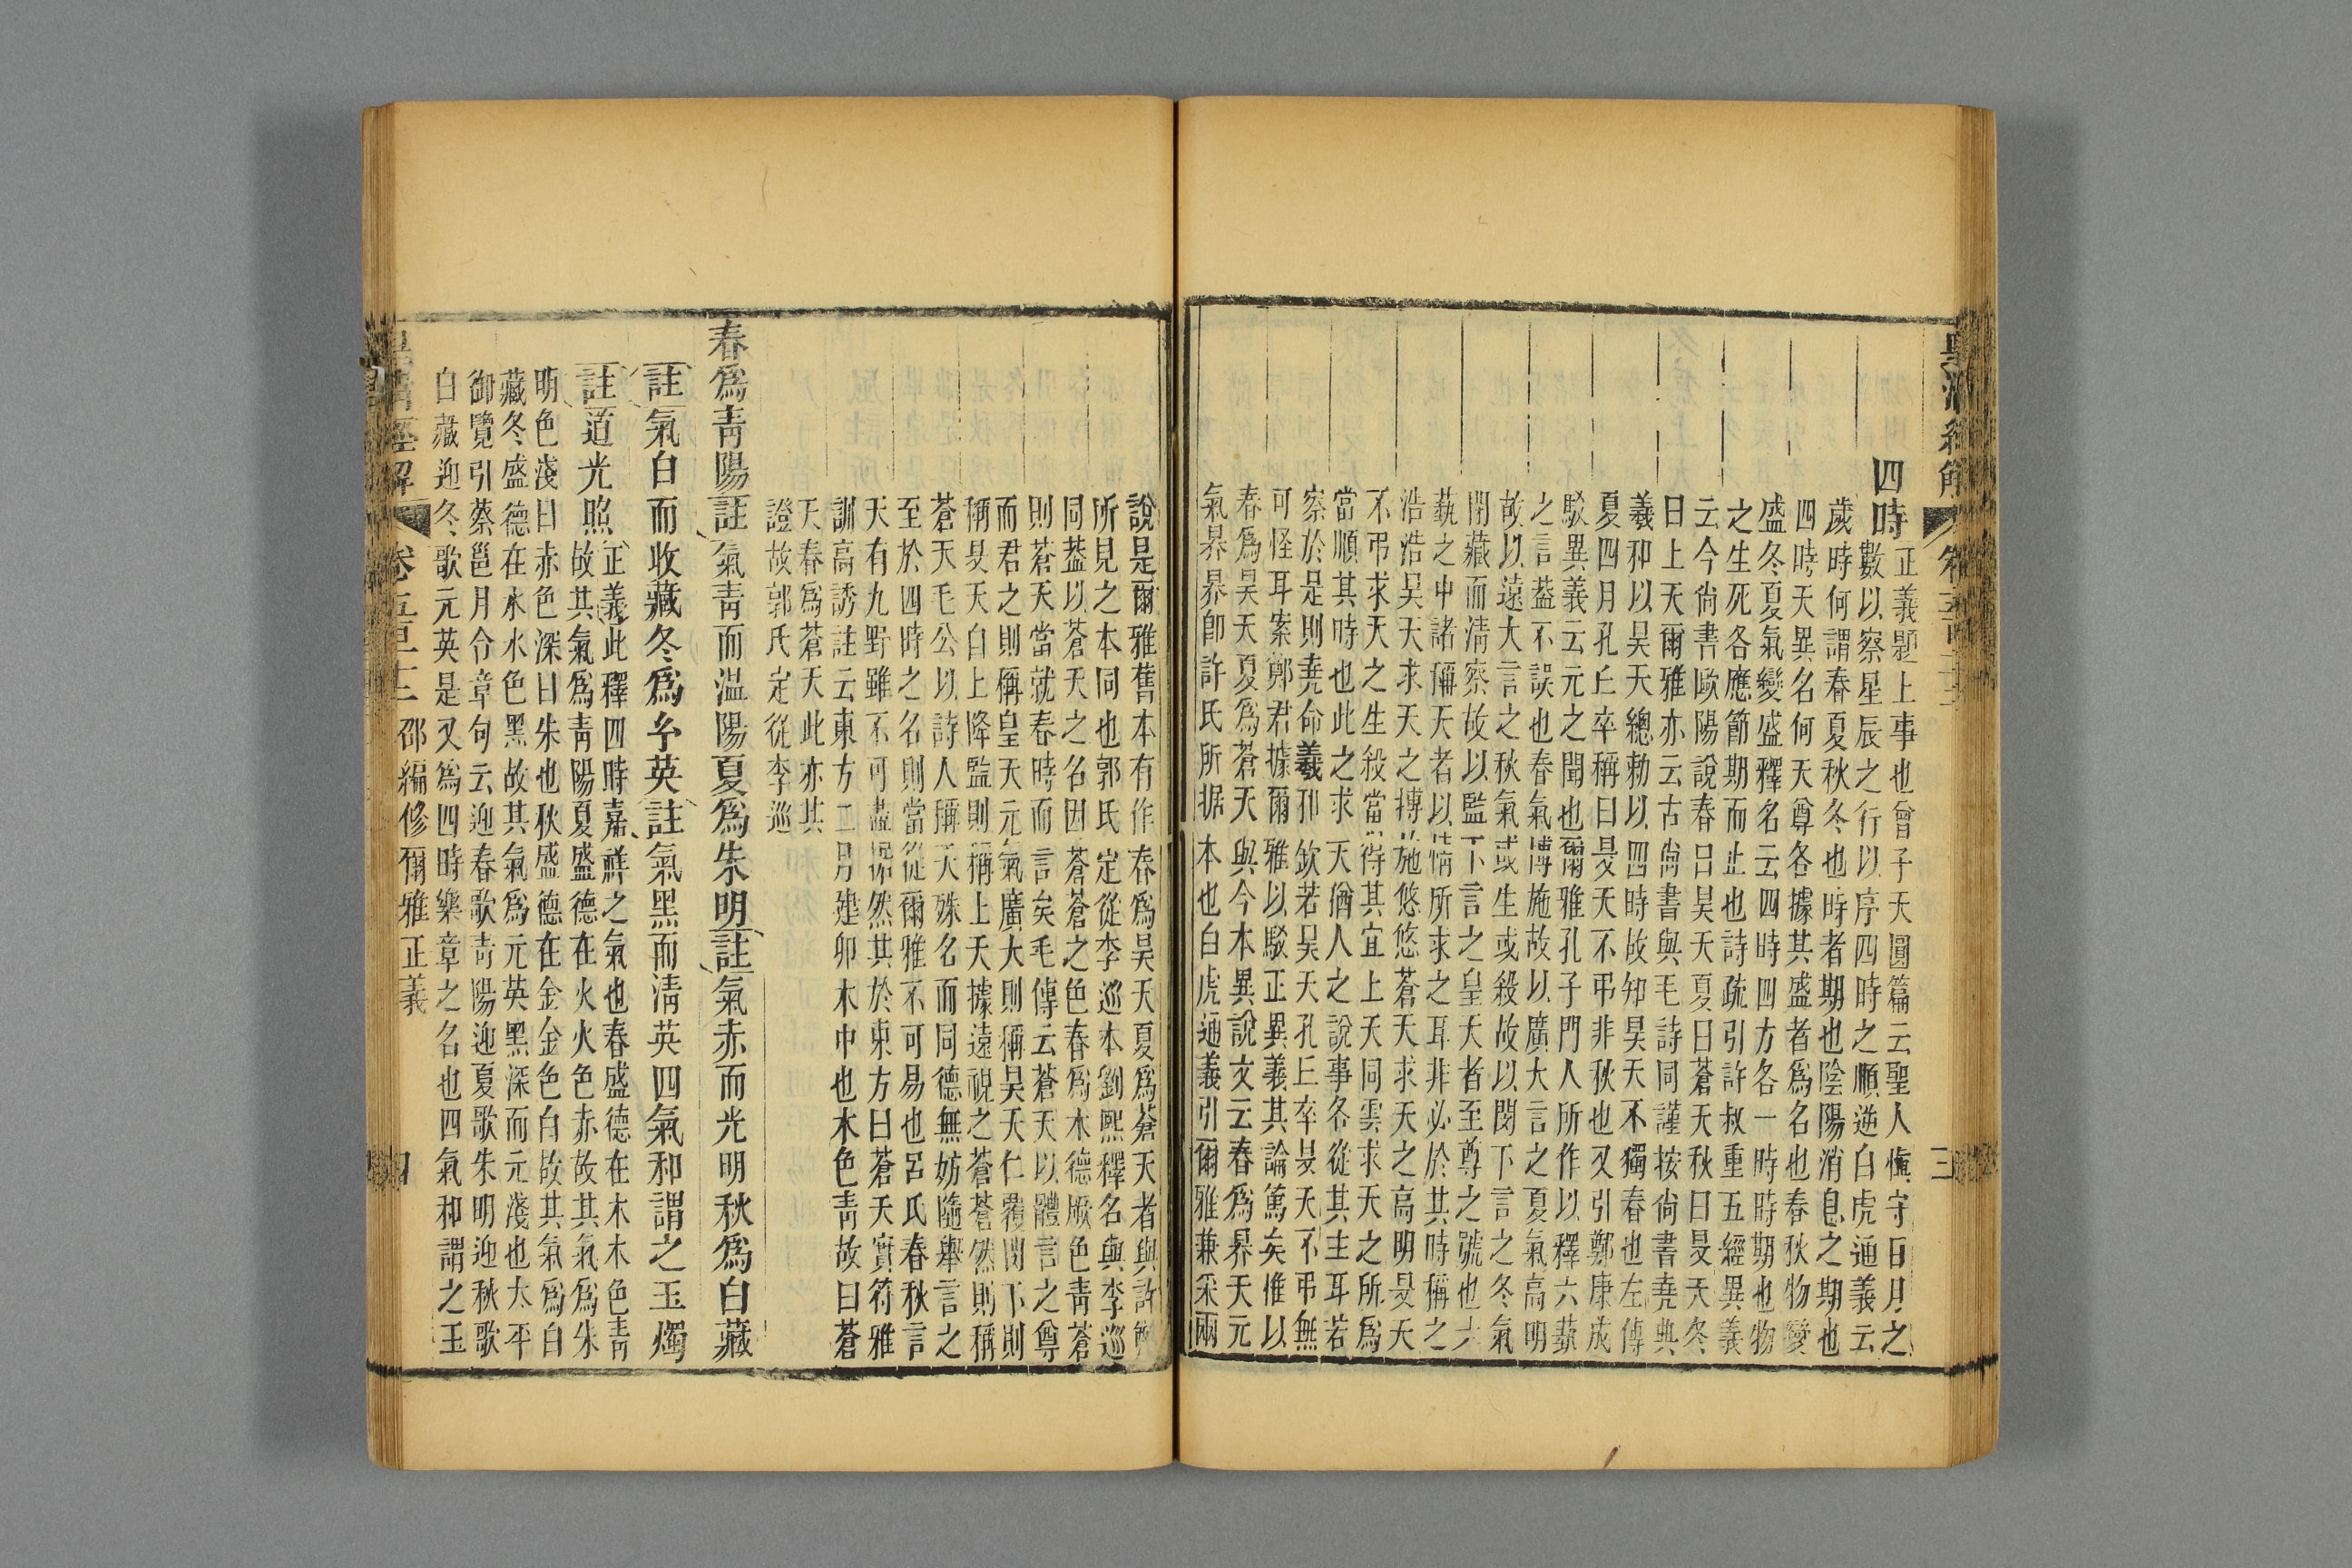 皇清經解
四時
正義題上事也曾子天圓篇云聖人愼守日月之
數以察星辰之行以序四時之順逆白虎通義云
歲時何謂春夏秋冬也時者期也陰陽消息之期也
四時天異名何天尊各據其盛者爲名也春秋物變
盛冬夏氣變盛釋名云四時四方各一時時期也物
之生死各應節期而止也詩疏引許叔重五經異義
云今尙書歐陽說春曰昊天夏曰蒼天秋曰旻天冬
曰上天爾雅亦云古尙書與毛詩同謹按尙書堯典
羲和以昊天總勅以四時故知昊天不獨春也左傳
夏四月孔丘卒稱曰旻天不弔非秋也又引鄭康成
駁異義云元之聞也爾雅孔子門人所作以釋六蓺
之言葢不誤也春氣博施故以廣大言之夏氣高明
故以遠大言之秋氣或生或殺故以閔下言之冬氣
閉藏而淸察故以監下言之皇天者至尊之號也六
蓺之中諸稱天者以情所求之耳非必於其時稱之
浩浩昊天求天之博施悠悠蒼天求天之高明旻天
不弔求天之生殺當得其宜上天同雲求天之所爲
當順其時也此之求天猶人之說事各從其主耳若
察於是則堯命羲和欽若昊天孔丘卒旻天不弔無
可怪耳案鄭君據爾雅以駁正異義其論篤矣惟以
春爲昊天夏爲蒼天與今本異說文云春爲昦天元
氣昦昦卽許氏所据本也白虎通義引爾雅兼采兩
三
說是爾雅舊本有作春爲昊天夏爲蒼天者與許
所見之本同也郭氏定從李巡本劉熙釋名與李巡
同葢以蒼天之名因蒼蒼之色春爲木德厥色靑蒼
則蒼天當就春時而言矣毛傳云蒼天以體言之尊
而君之則稱皇天元氣廣大則稱昊天仁覆閔下則
稱旻天自上降監則稱上天據遠視之蒼蒼然則稱
蒼天毛公以詩人稱天殊名而同德無妨隨舉言之
至於四時之名則當從爾雅不可易也呂氏春秋言
天有九野雖不可盡据然其於東方曰蒼天實符雅
訓高誘註云東方二月建卯木中也木色靑故曰蒼
天春爲蒼天此亦其
證故郭氏定從李巡
春爲靑陽註氣靑而温陽夏爲朱明註氣赤而光明秋爲白藏
註氣白而收藏冬爲𤣥英註氣黑而淸英四氣和謂之玉燭
註道光照正義此釋四時嘉祥之氣也春盛德在木木色靑
故其氣爲靑陽夏盛德在火火色赤故其氣爲朱
明色淺曰赤色深曰朱也秋盛德在金金色白故其氣爲白
藏冬盛德在水水色黑故其氣爲元英黑深而元淺也太平
御覽引蔡邕月令章句云迎春歌靑陽迎夏歌朱明迎秋歌
白藏迎冬歌元英是又爲四時樂章之名也四氣和謂之玉
皇清經解 卷五百十三 邵編修爾雅正義
四